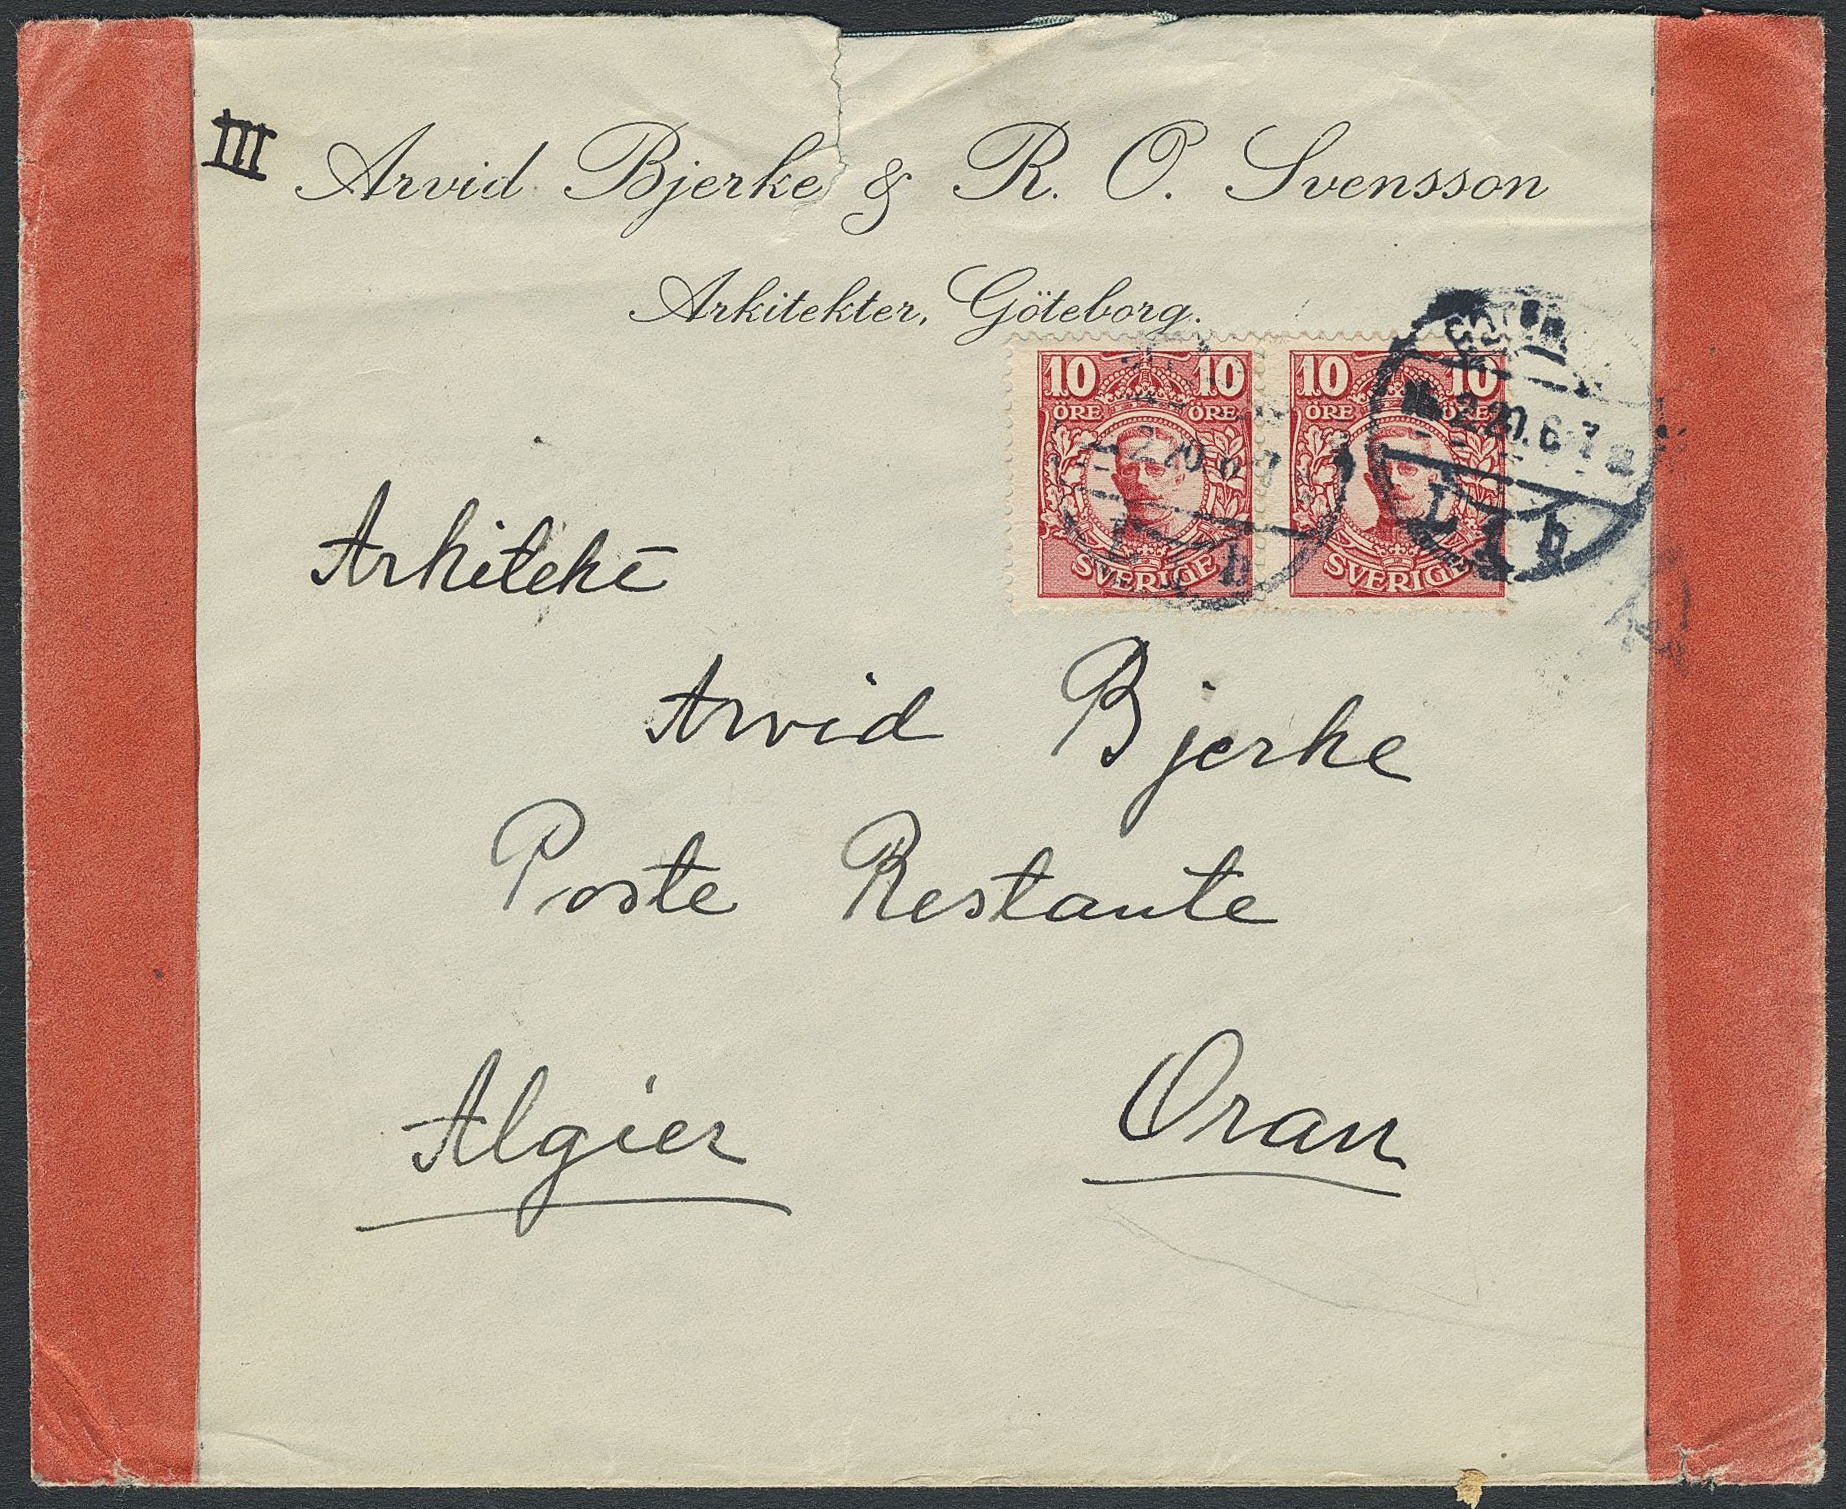 III Arvid Bjerke & R. O. Svensson
Arkitekter, Göteborg.
10 10 10 10
ÖRE ÖRE ÖRE ÖRE
2.20. 6-7
L 1 b
SVERIGE SVERIGE
Arkitekt
Arvid Bjerke
Poste Restante
Algier Oran